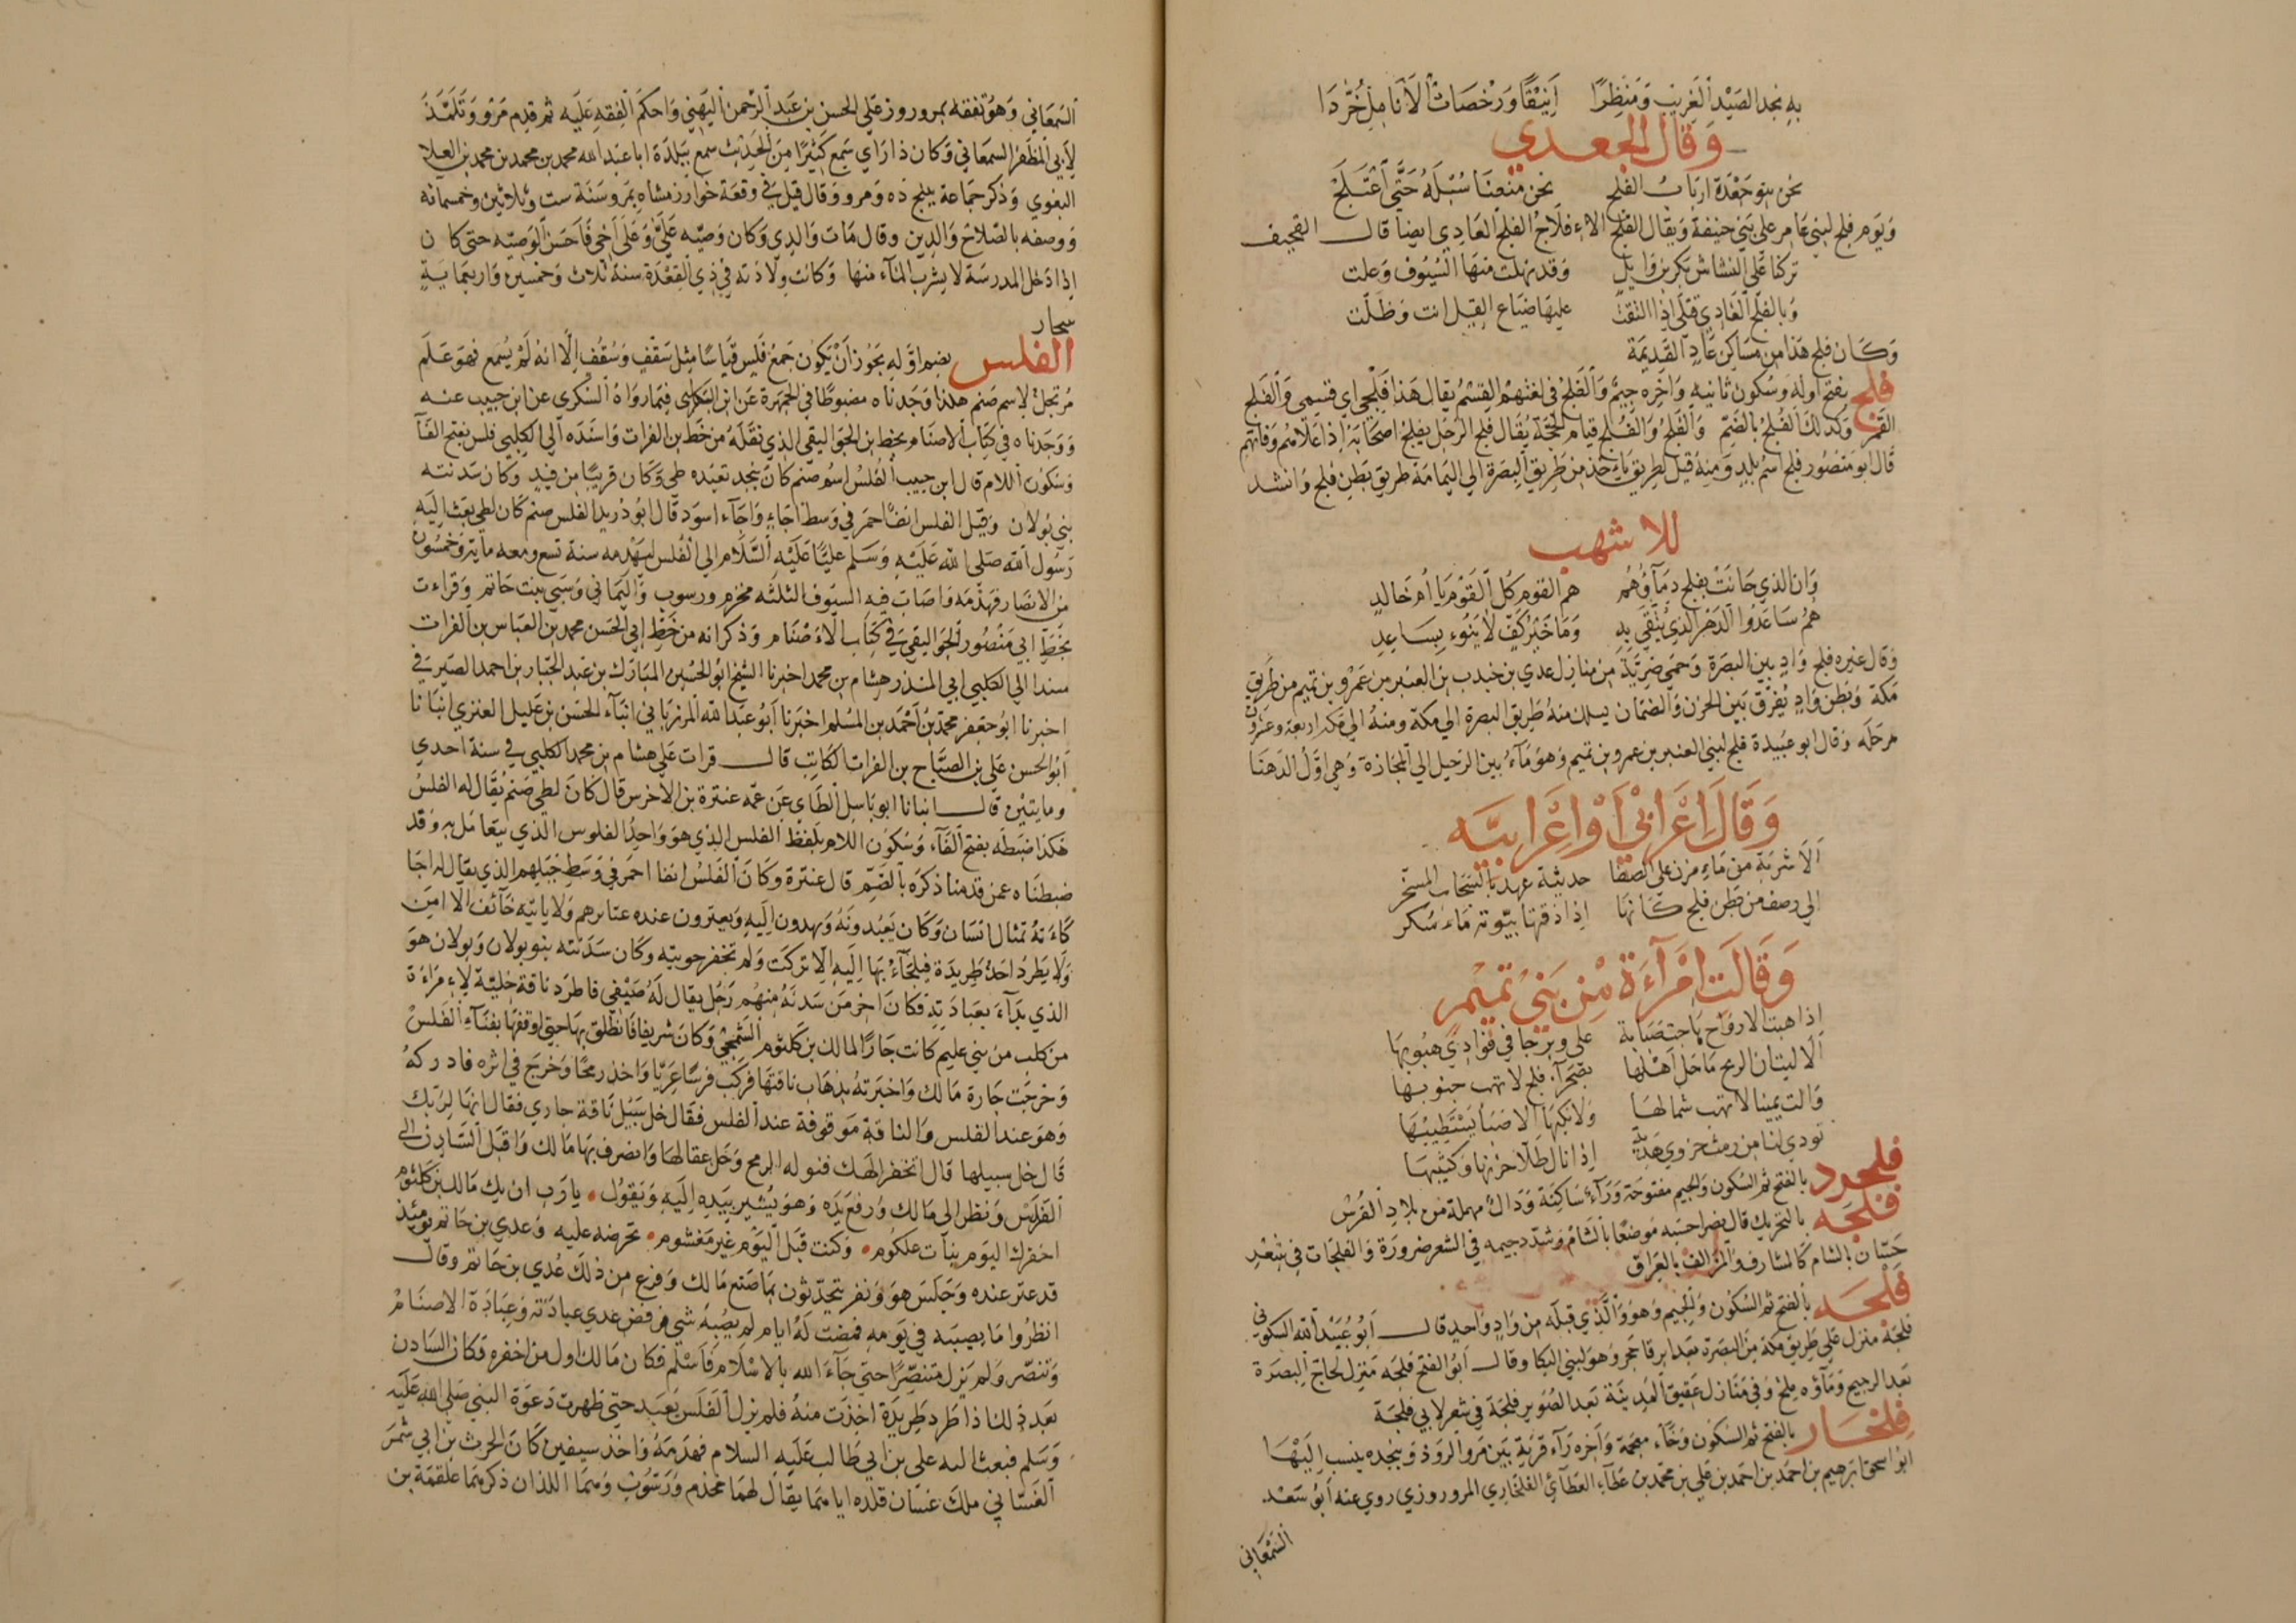 به نجد الصيد الغريب ومنظرا انيقا ورخصات الانامل خردا
وقال الجعدي
نحن بنو جعدة ارباب الفلج نحن منعنا سبله حتى اعتلج
ويوم فلج لبني عامر على بني حنيفة ويقال الفلج الاء فلاج الفلج العادي ايضا قال القحيف
تركنا على النشاش بكر بن وايل وقد نهلت منها السيوف وعلت
وبالفلج العادي قتلى اذا التقت عليها ضباع الغيل انت وظلت
وكان فلج هذا من مساكن عاد القديمة
فلج بفتح اوله وسكون ثانيه واخره جيم والفلج في لغتهم القسم يقال هذا فلجي اي قسمي والفلج
القمر وكذلك الفلج بالضم والفلج والفلج قيام الحجة يقال فلج الرجل يفلج اصحابه اذا علاهم وفاتهم
قال ابو منصور فلج اسم بلد ومنه قيل لطريق ياخذ من طريق البصرة الي اليمامة طريق بطن فلج وانشد
للاشهب
وان الذي حانت بفلج دماؤهم هم القوم كل القوم يا ام خالد
هم ساعدوا الدهر الذي يتقى به وما خير كف لا ينوء بساعد
وقال غيره فلج واد بين البصرة وحمى ضرية من منازل عدي بن جندب بن العنبر بن عمرو بن تميم من طريق
مكة وبطن واد يفرق بين الحزن والصمان يسلك منه طريق البصرة الي مكة ومنه الي مكة اربعة وعشرون
مرحلة وقال ابو عبيدة فلج لبني العنبر بن عمرو بن تميم وهو ماء بين الرحيل الي المجازة وهي اول الدهنا
وقال اعرابي او اعرابيه
الا شربة من ماء مزن على الصفا حديثة عهد بالسحاب المسخر
الي رصف من بطن فلج كانها اذا ذقتها بيوتة ماء سكر
وقالت امراءة من بني تميم
اذا هبت الارواح هاجت صبابة علي وبرحا في فؤادي هبوبها
الا ليت ان الريح ما حل اهلها بصحراء فلج لا تهب جنوبها
والت يمينا لا تهب شمالها ولا نكبها الا صبا يستطيبها
تودي لنا من رمث حزوي هدية اذا نال طلا حزنها وكثيبها
فلجرد بالفتح ثم السكون والجيم مفتوحة وراء ساكنة ودال مهملة من بلاد الفرس
فلجه بالتحريك قال نصر احسبه موضعا بالشام وشدد جيمه في الشعر ضرورة والفلجات في شعر
حسان بالشام كالمشارف والمزالف بالعراق
فلجه بالفتح ثم السكون والجيم وهو والذي قبله من واد واحد قال ابو عبيد الله السكوني
فلجة منزل على طريق مكة من البصرة بعد ابرقا حجر وهو لبني البكا وقال ابو الفتح فلجه منزل لحاج البصرة
بعد الرجيح وماؤه ملح وفي منازل عقيق المدينة بعد الصوير فلجة في شعر لابي فلجة
فلخار بالفتح ثم السكون وخاء معجمة واخره راء قرية بين مرو الروذ وبنجده ينسب اليها
ابو اسحق ابرهيم بن احمد بن احمد بن علي بن محمد بن عطاء العطائي الفلخاري المروروزي روي عنه ابو سعد
السمعاني
السمعاني وهو تفقه بمروروز على الحسن بن عبد الرحمن اليهني واحكم الفقه عليه ثم قدم مرو وتلمذ
لابي المظفر السمعاني وكان ذا راي سمع كثيرا من الحديث سمع ببلدة ابا عبد الله محمد بن محمد بن محمد بن العلا
البغوي وذكر جماعة ببلج ده ومرو وقال قتل في وقعة خوارزمشاه بمرو سنة ست وثلاثين وخمسمائه
ووصفه بالصلاح والدين وقال مات والدي وكان وصيه علي وعلى اخي فاحسن الوصيه حتى كان
اذا دخل المدرسة لا يشرب الماء منها وكانت ولادته في ذي القعدة سنة ثلاث وخمسين واربعماية
سحار
الفلس بضم اوله يجوز ان يكون جمع فلس قياسا مثل سقف وسقف الا انه لم يسمع فهو علم
مرتجل لاسم صنم هكذا وجدناه مضبوطا في الجمهرة عن ابن الكلبي فيما رواه السكري عن ابن حبيب عنه
ووجدناه في كتاب الاصنام بخط ابن الجواليقي الذي نقله من خط بن الفرات واسنده الي الكلبي فلس بفتح الفآ
وسكون اللام قال ابن حبيب الفلس اسم صنم كان بنجد تعبده طي وكان قريبا من فيد وكان سدنته
بني بولان وقيل الفلس انف احمر في وسط اجاء واجاء اسود قال ابو دريد الفلس صنم كان لطي بعث اليه
رسول الله صلى الله عليه وسلم عليا عليه السلام الي الفلس ليهدمه سنة تسع ومعه مايتي وخمسون
من الانصار فهدمه واصاب فيه السيوف الثلثه مخزم ورسوب واليماني وسبى بنت حاتم وقراءت
بخط ابي منصور الجواليقي في كتاب الاء صنام وذكر انه من خط ابي الحسن محمد بن العباس بن الفرات
مسندا الي الكلبي ابي المنذر هشام بن محمد اخبرنا الشيخ ابو الحسين المبارك بن عبد الجبار بن احمد الصيرفي
اخبرنا ابو جعفر محمد بن احمد بن المسلم اخبرنا ابو عبد الله المرزباني انباء الحسن بن عليل العنزي انبانا
ابو الحسن علي بن الصباح بن الفرات الكاتب قال قرات على هشام بن محمد الكلبي في سنة احدي
ومايتين قال انبانا ابو باسل الطاي عن عمه عنترة بن الاخرس قال كان لطي صنم يقال له الفلس
هكذا ضبطه بفتح الفاء وسكون اللام بلفظ الفلس الذي هو واحد الفلوس الذي يتعامل به وقد
ضبطناه عمن قدمنا ذكره بالضم قال عنترة وكان الفلس انفا احمر في وسط جبلهم الذي يقال له اجا
كاءنه تمثال انسان وكان يعبدونه ويهدون اليه ويعترون عنده عتايرهم ولا ياتيه خائف الا امن
ولا يطرد احد طريدة فيلجاء بها اليه الا تركت ولم تخفر حويته وكان سدنته بنو بولان وبولان هو
الذي بداء بعبادته فكان اخر من سدنه منهم رجل يقال له صيفي فاطرد ناقة خلية لاء مراءة
من كلب من بني عليم كانت جارا لمالك بن كلثوم الشمجي وكان شريفا فانطلق بها حتى اوقفها بفناء الفلس
وخرجت جارة مالك واخبرته بذهاب ناقتها فركب فرسا عريا واخذ رمحا وخرج في اثره فادركه
وهو عند الفلس والناقة موقوفة عند الفلس فقال خل سبيل ناقة جاري فقال انها لربك
قال خل سبيلها قال اتخفر الهك فنوله الرمح وحل عقالها وانصرف بها مالك واقبل السادن الي
الفلس ونظر الى مالك ورفع يده وهو يشير بيده اليه ويقول يا رب ان يك مالك بن كلثوم
اخفرك اليوم بناب علكوم وكنت قبل اليوم غير مغشوم تحرضه عليه وعدي بن حاتم يومئذ
قد عتر عنده وجلس هو ونفر يتحدثون بما صنع مالك وفزع من ذلك عدي بن حاتم وقال
انظروا ما يصيبه في يومه فمضت له ايام لم يصبه شي فرفض عدي عبادته وعبادة الاصنام
وتنصر ولم يزل متنصرا حتى جاء الله بالاسلام فاسلم فكان مالك اول من اخفره فكان السادن
بعد ذلك اذا طرد طريدة اخذت منه فلم يزل الفلس يعبد حتى ظهرت دعوة النبي صلى الله عليه
وسلم فبعث اليه علي بن ابي طالب عليه السلام فهدمه واخذ سيفين كان الحرث بن ابي شمر
الغساني ملك غسان قلده اياهما يقال لهما مخذم ورسوب وهما اللذان ذكرهما علقمة بن